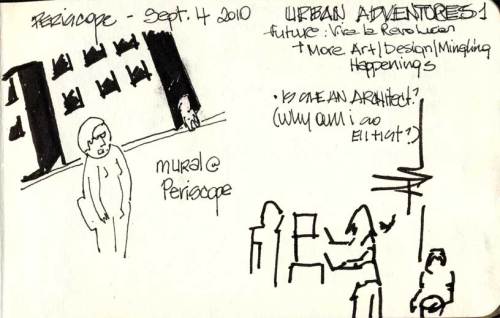 PERISCOPE - Sept. 4 2010
URBAN ADVENTURES 1
future: Viva la Revolucion
+ More Art/Design/Mingling
Happenings
• Is one AN ARCHITECT?
(Why am i so
Elitist?)
mural @
Periscope